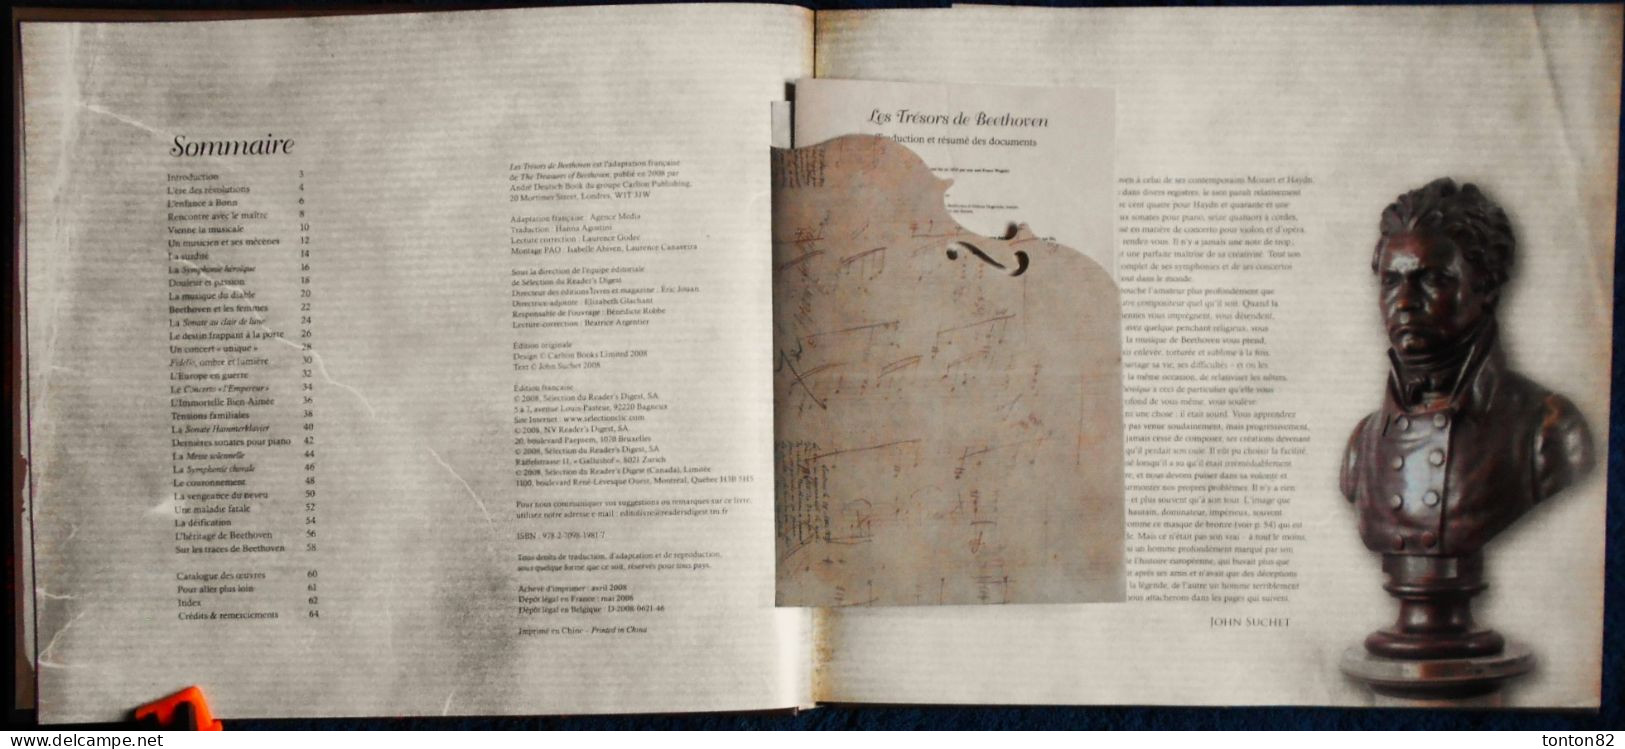 Sommaire
Introduction 3
L'ère des révolutions 4
L'enfance à Bonn 6
Rencontre avec le maître 8
Vienne la musicale 10
Un musicien et ses mécènes 12
La surdité 14
La Symphonie héroïque 16
Douleur et passion 18
La musique du diable 20
Beethoven et les femmes 22
La Sonate au clair de lune 24
Le destin frappant à la porte 26
Un concert « unique » 28
Fidelio, ombre et lumière 30
L'Europe en guerre 32
Le Concerto « l'Empereur » 34
L'Immortelle Bien-Aimée 36
Tensions familiales 38
La Sonate Hammerklavier 40
Dernières sonates pour piano 42
La Messe solennelle 44
La Symphonie chorale 46
Le couronnement 48
La vengeance du neveu 50
Une maladie fatale 52
La déification 54
L'héritage de Beethoven 56
Sur les traces de Beethoven 58
Catalogue des œuvres 60
Pour aller plus loin 61
Index 62
Crédits & remerciements 64
Les Trésors de Beethoven est l'adaptation française
de The Treasures of Beethoven, publié en 2008 par
André Deutsch Book du groupe Carlton Publishing,
20 Mortimer Street, Londres, W1T 3JW
Adaptation française : Agence Media
Traduction : Hanna Agostini
Lecture correction : Laurence Godec
Montage PAO : Isabelle Abiven, Laurence Canaveira
Sous la direction de l'équipe éditoriale
de Sélection du Reader's Digest
Directeur des éditions livres et magazine : Éric Jouan
Directrice adjointe : Elizabeth Glachant
Responsable de l'ouvrage : Bénédicte Robbe
Lecture-correction : Béatrice Argentier
Édition originale
Design © Carlton Books Limited 2008
Text © John Suchet 2008
Édition française
© 2008, Sélection du Reader's Digest, SA
5 à 7, avenue Louis-Pasteur, 92220 Bagneux
Site Internet : www.selectionclic.com
© 2008, NV Reader's Digest, SA
20, boulevard Paepsem, 1070 Bruxelles
© 2008, Sélection du Reader's Digest, SA
Räffelstrasse 11, « Gallushof », 8021 Zurich
© 2008, Sélection du Reader's Digest (Canada), Limitée
1100, boulevard René-Lévesque Ouest, Montréal, Québec H3B 5H5
Pour nous communiquer vos suggestions ou remarques sur ce livre,
utilisez notre adresse e-mail : editolivre@readersdigest.tm.fr
ISBN : 978-2-7098-1981-7
Tous droits de traduction, d'adaptation et de reproduction,
sous quelque forme que ce soit, réservés pour tous pays.
Achevé d'imprimer : avril 2008
Dépôt légal en France : mai 2008
Dépôt légal en Belgique : D-2008-0621-46
Imprimé en Chine – Printed in China
Les Trésors de Beethoven
Traduction et résumé des documents
à celui de ses contemporains Mozart et Haydn,
dans divers registres, le sien paraît relativement
cent quatre pour Haydn et quarante et une
sonates pour piano, seize quatuors à cordes,
en matière de concerto pour violon et d'opéra,
rendez-vous. Il n'y a jamais une note de trop,
une parfaite maîtrise de sa créativité. Tout son
de ses symphonies et de ses concertos
dans le monde.
l'amateur plus profondément que
compositeur quel qu'il soit. Quand la
vous imprègnent, vous détendent,
avez quelque penchant religieux, vous
la musique de Beethoven vous prend,
enlevée, torturée et sublime à la fois,
sa vie, ses difficultés – et on les
la même occasion, de relativiser les nôtres.
a ceci de particulier qu'elle vous
de vous-même, vous soulève.
une chose : il était sourd. Vous apprendrez
pas venue soudainement, mais progressivement,
jamais cessé de composer, ses créations devenant
qu'il perdait son ouïe. Il eût pu choisir la facilité,
lorsqu'il a su qu'il était irrémédiablement
et nous devons puiser dans sa volonté et
surmonter nos propres problèmes. Il n'y a rien
et plus souvent qu'à son tour. L'image que
hautain, dominateur, impérieux, souvent
comme ce masque de bronze (voir p. 54) qui est
Mais ce n'était pas son vrai – à tout le moins,
un homme profondément marqué par son
l'histoire européenne, qui buvait plus que
après ses amis et n'avait que des déceptions
la légende, de l'autre un homme terriblement
nous attacherons dans les pages qui suivent.
JOHN SUCHET
tonton82